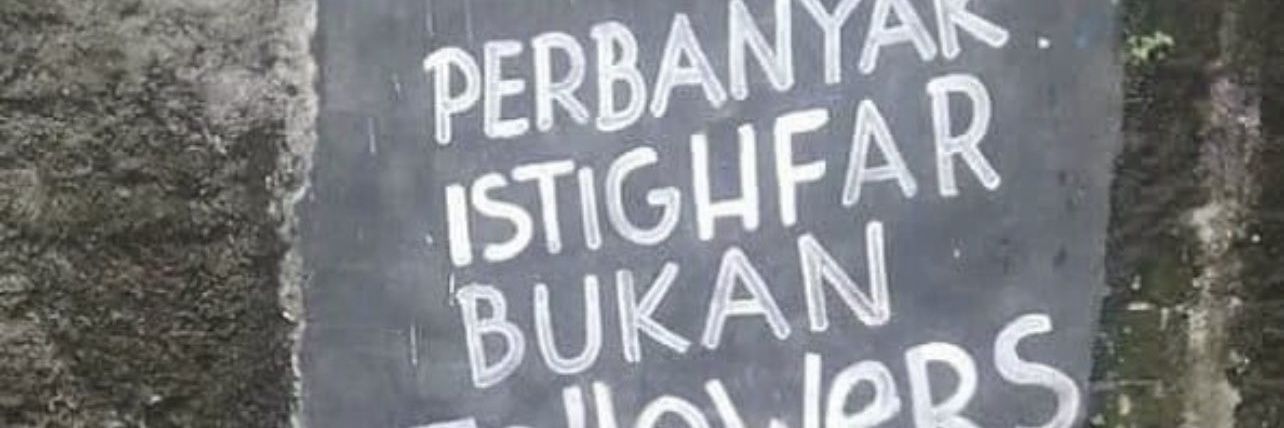 PERBANYAK
ISTIGHFAR
BUKAN
FolloWeRS